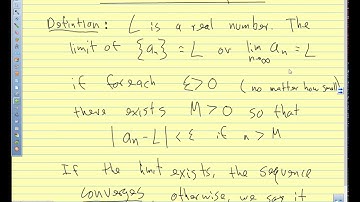 Definition: L is a real number. The
limit of {aₙ} = L or lim aₙ = L
n→∞
if for each ε>0 (no matter how small)
there exists M>0 so that
|aₙ-L| < ε if n > M
If the limit exists, the sequence
converges, otherwise, we say it